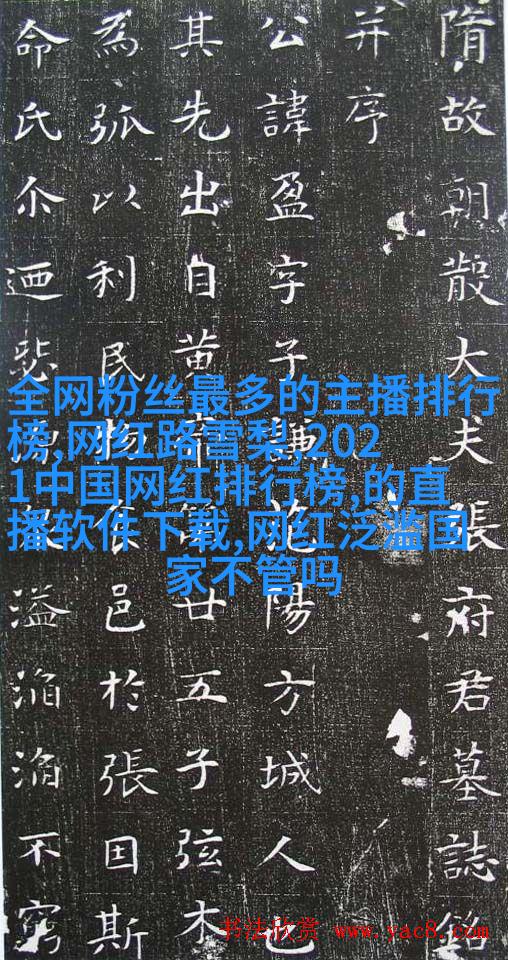 隋故朝散大夫張府君墓誌銘
并序
公諱盈字子謙范陽方城人也
其先出自黃帝廿五子弦木
為弧以利民物食邑於張因斯
命氏尒迺溢滔滔不窮
全网粉丝最多的主播排行
榜,网红路雪梨,202
1中国网红排行榜,的直
播软件下载,网红泛滥国
家不管吗
书法欣赏 www.yac8.com